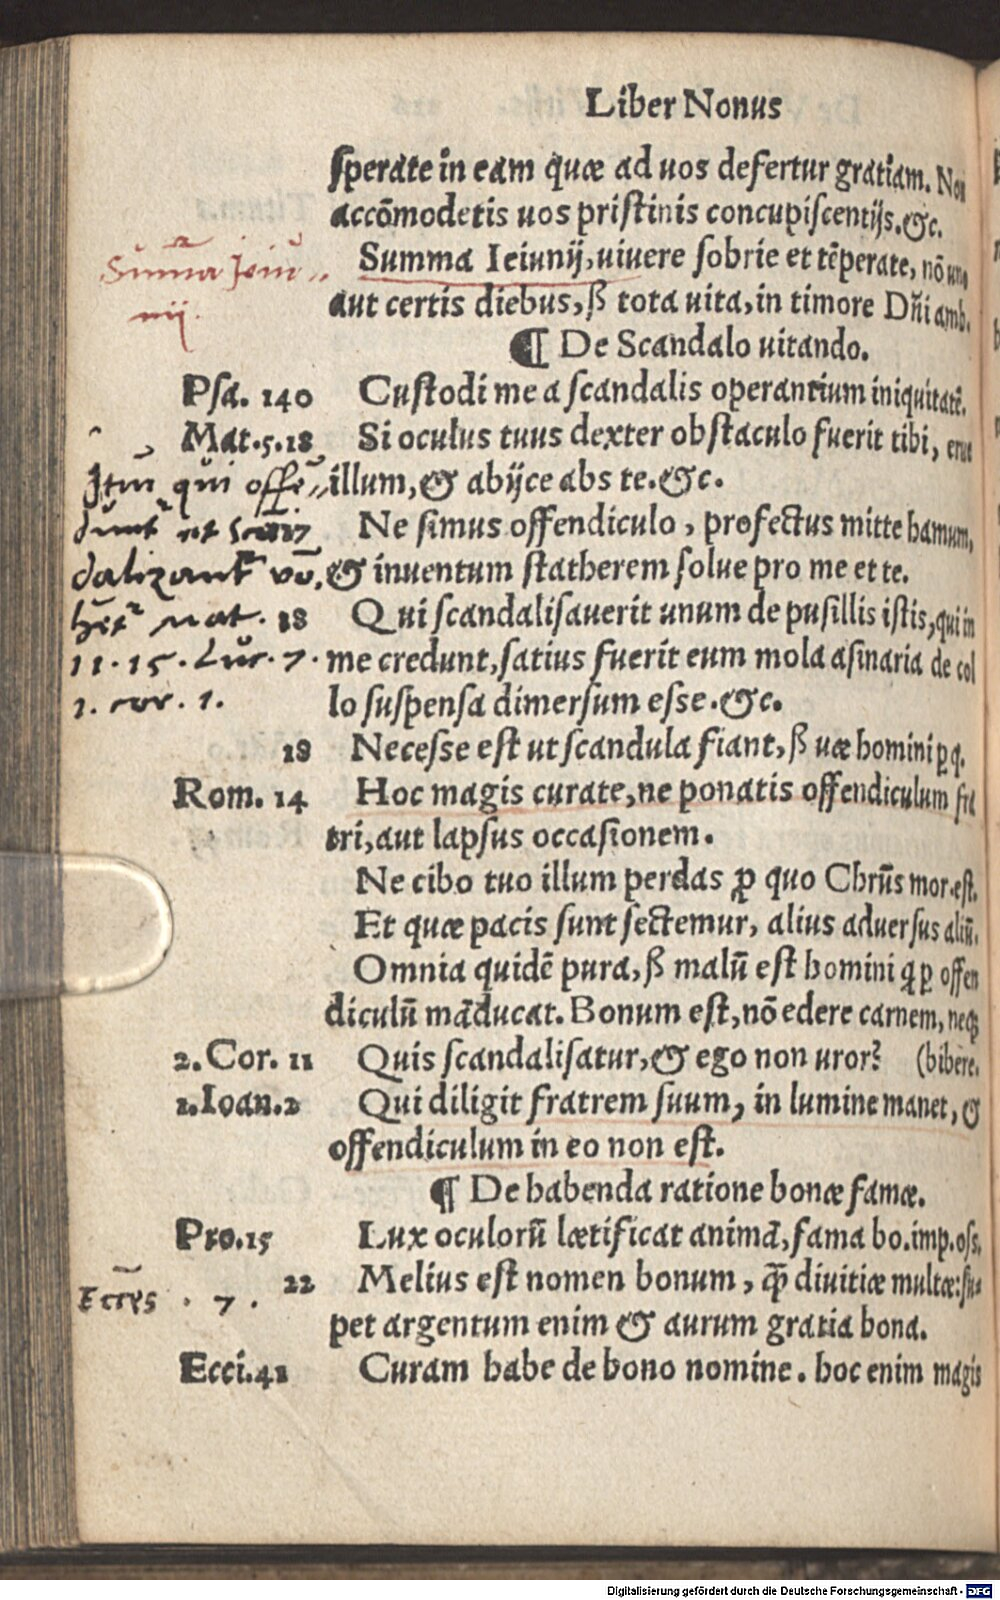 Liber Nonus
sperate in eam quæ ad uos defertur gratiam. Non
accõmodetis uos pristinis concupiscentijs.&c.
Summa Ieiunij, uiuere sobrie et tẽperate, nõ uno
Sum̃a Jeiu„
nij.
aut certis diebus, ß tota uita, in timore Dñi amb.
¶ De Scandalo uitando.
Psa. 140 Custodi me a scandalis operantium iniquitatẽ.
Mat.5.18 Si oculus tuus dexter obstaculo fuerit tibi, erue
Itm̃ qui offẽ„ illum, & abijce abs te.&c.
Ne simus offendiculo, profectus mitte hamum,
dalizant võ, & inuentum statherem solue pro me et te.
mat. 18 Qui scandalisauerit unum de pusillis istis, qui in
11.15. Luc. 7. me credunt, satius fuerit eum mola asinaria de col
1. cor. 1. lo suspensa dimersum esse.&c.
18 Necesse est ut scandula fiant, ß uæ homini ꝑ q.
Rom. 14 Hoc magis curate, ne ponatis offendiculum fra
tri, aut lapsus occasionem.
Ne cibo tuo illum perdas ꝓ quo Chrũs mor.est.
Et quæ pacis sunt sectemur, alius aduersus aliũ.
Omnia quidẽ pura, ß malũ est homini q̃ ꝑ offen
diculũ mãducat. Bonum est, nõ edere carnem, neqꝫ
2. Cor. 11 Quis scandalisatur, & ego non uror? (bibere.
1.Ioan.2 Qui diligit fratrem suum, in lumine manet, &
offendiculum in eo non est.
¶ De habenda ratione bonæ famæ.
Pro.15 Lux oculorũ lætificat animã, fama bo.imp.oss.
22 Melius est nomen bonum, q̃ diuitiæ multæ: su-
Eccl̃s . 7 .
pet argentum enim & aurum gratia bona.
Ecci.41 Curam habe de bono nomine. hoc enim magis
Digitalisierung gefördert durch die Deutsche Forschungsgemeinschaft - DFG